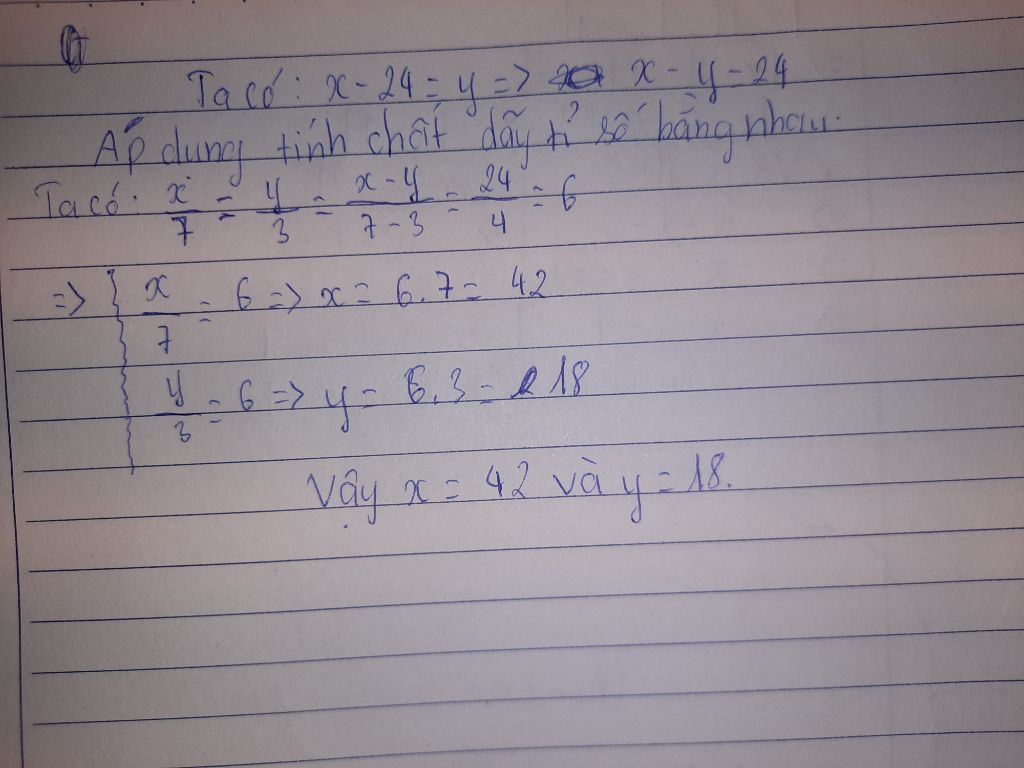 Ta có: x - 24 = y => x - y = 24
Áp dung tính chất dãy tỉ số bằng nhau.
Ta có: x/7 = y/3 = x - y/7 - 3 = 24/4 = 6
=> { x/7 = 6 => x = 6.7 = 42
y/3 = 6 => y = 6.3 = 18
Vậy x = 42 và y = 18.